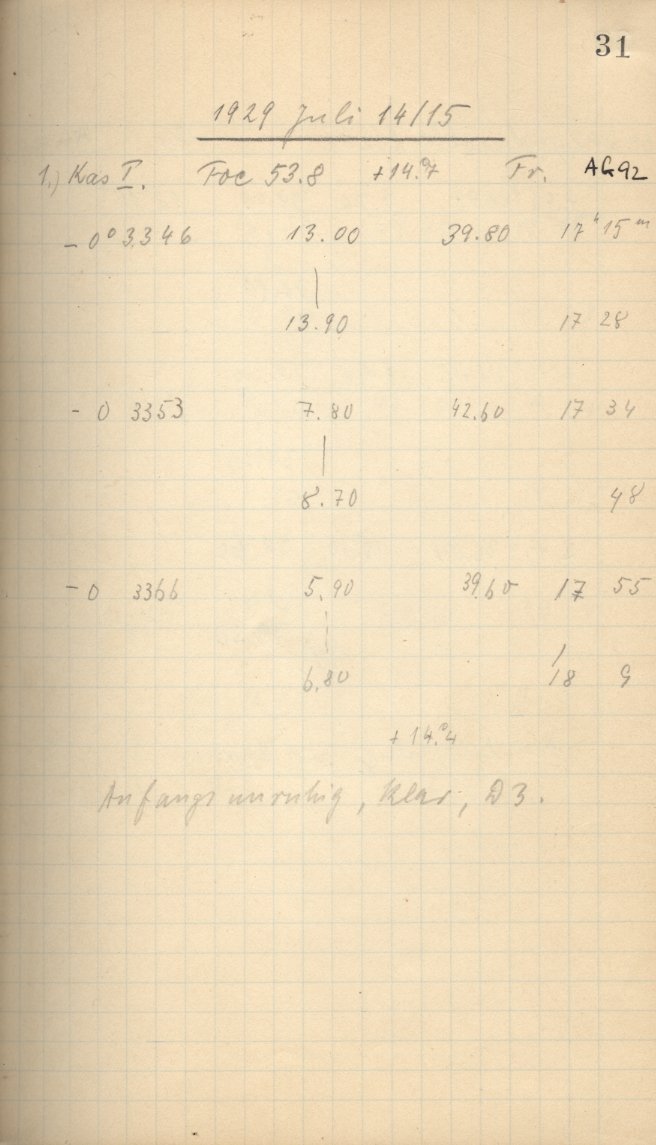 31
1929 Juli 14/15
1.) Kas I. Foc 53.8 +14.°7 Fr. AG92
- 0° 3346 13.00 39.80 17ʰ 15ᵐ
|
13.90 17 28
- 0 3353 7.80 42.60 17 34
|
8.70 48
- 0 3366 5.90 39.60 17 55
|
6.80 18 9
+14.°4
Anfangs unruhig, klar, D3.